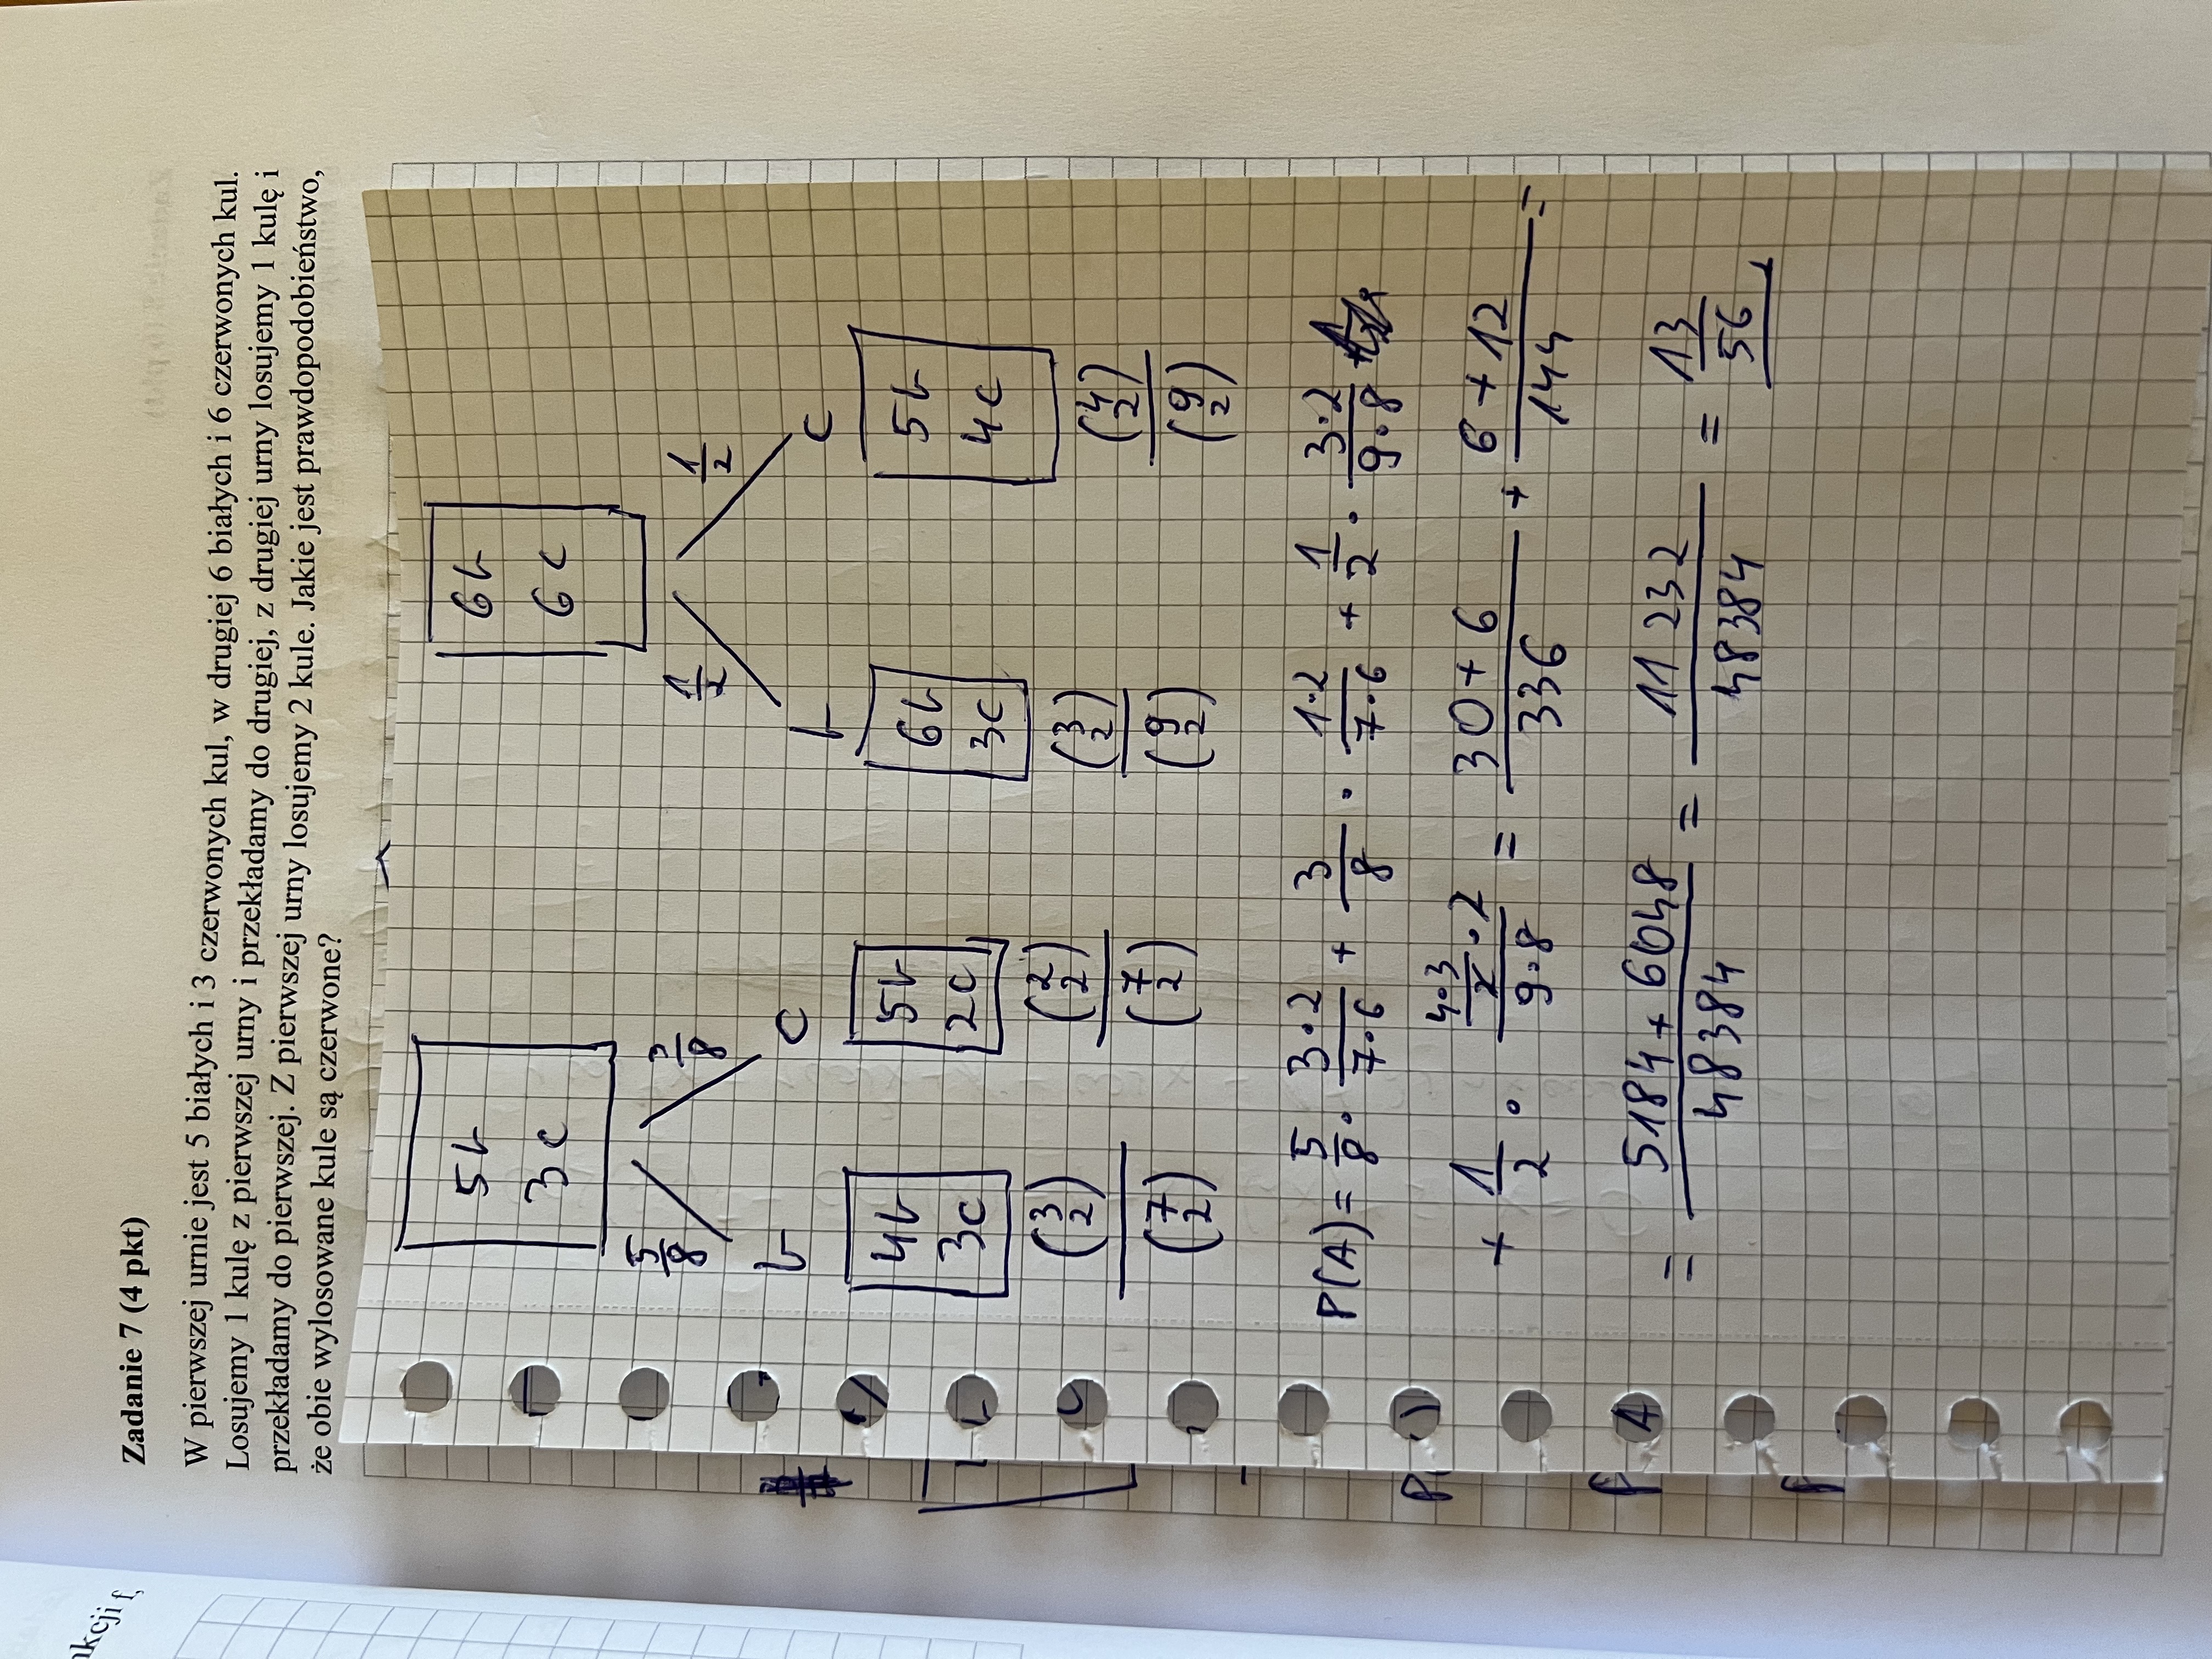 Zadanie 7 (4 pkt)
W pierwszej urnie jest 5 białych i 3 czerwonych kul, w drugiej 6 białych i 6 czerwonych kul.
Losujemy 1 kulę z pierwszej urny i przekładamy do drugiej, z drugiej urny losujemy 1 kulę i
przekładamy do pierwszej. Z pierwszej urny losujemy 2 kule. Jakie jest prawdopodobieństwo,
że obie wylosowane kule są czerwone?
5b 6b
3c 6c
5/8 3/8 1/2 1/2
b c b c
4b 5b 6b 5b
3c 2c 3c 4c
(3 2)/(7 2) (2 2)/(7 2) (3 2)/(9 2) (4 2)/(9 2)
P(A) = 5/8 · 3·2/7·6 + 3/8 · 1·2/7·6 + 1/2 · 3·2/9·8
+ 1/2 · 4·3/2·2/9·8 = 30+6/336 + 6+12/144 =
= 5184+6048/48384 = 11 232/48384 = 13/56